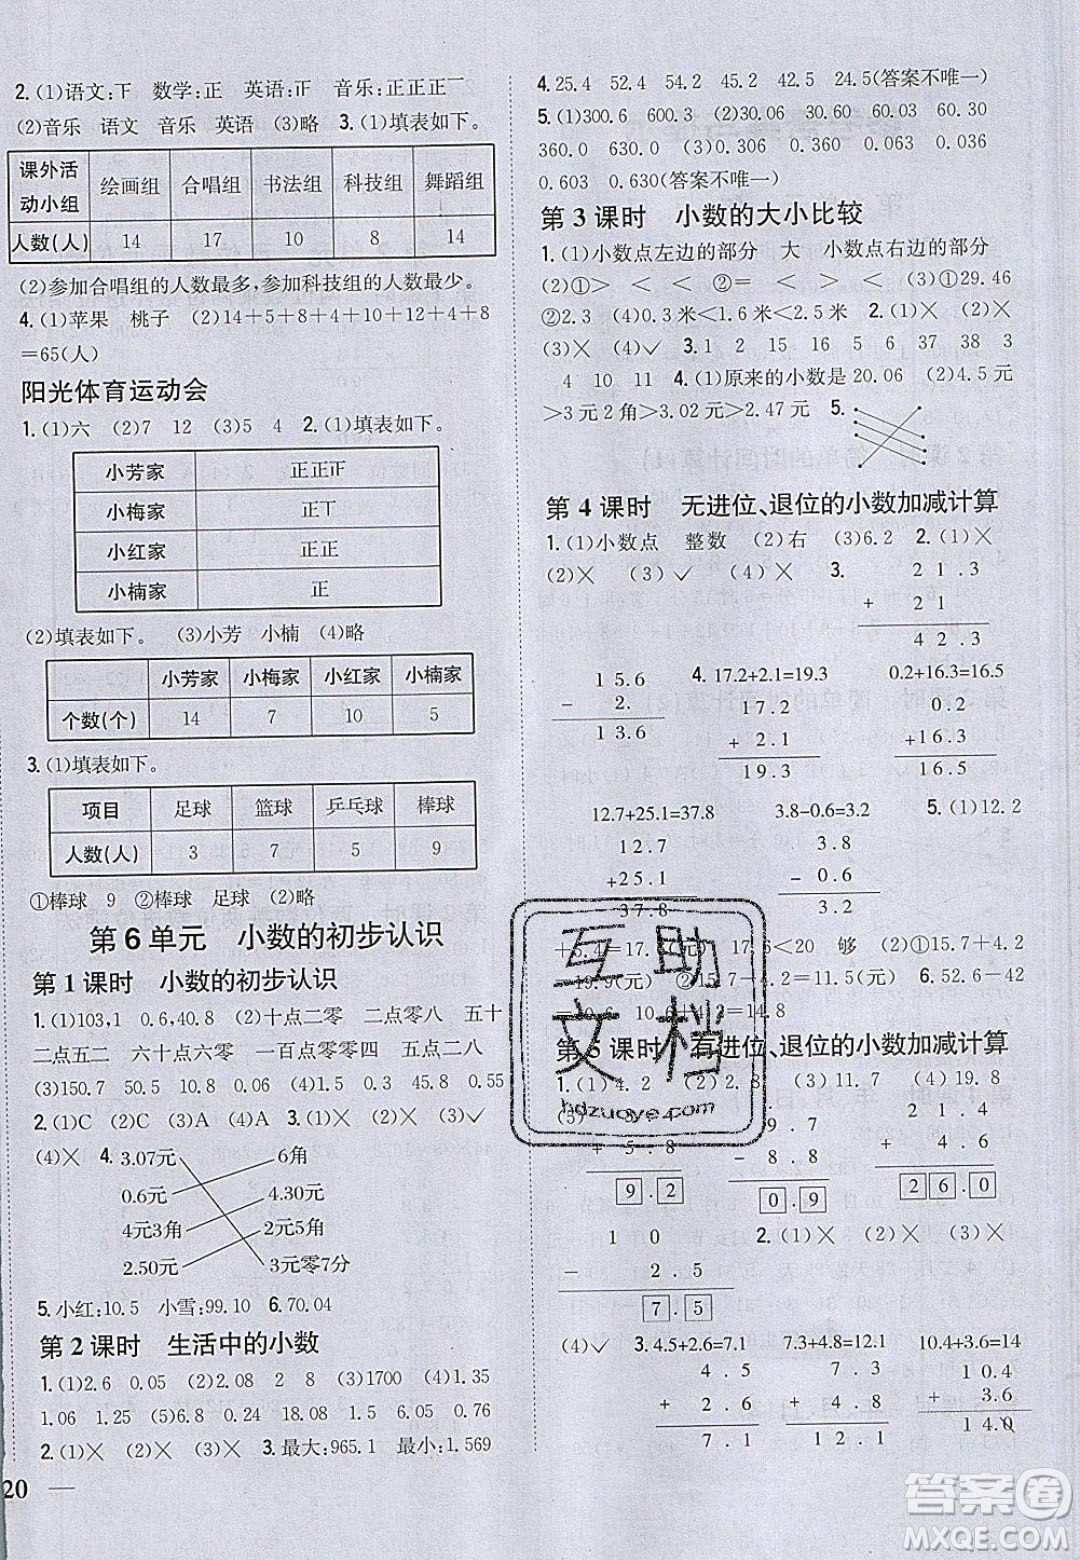 2.(1)语文:下 数学:正 英语:正 音乐:正正正一
(2)音乐 语文 音乐 英语 (3)略 3.(1)填表如下。
课外活动小组 绘画组 合唱组 书法组 科技组 舞蹈组
人数(人) 14 17 10 8 14
(2)参加合唱组的人数最多,参加科技组的人数最少。
4.(1)苹果 桃子 (2)14+5+8+14+8+4+4+8
=65(人)
阳光体育运动会
1.(1)六 (2)7 12 (3)5 4 2.(1)填表如下。
小芳家 正正
小梅家 正丅
小红家 正正
小楠家 正
(2)填表如下。 (3)小芳 小楠 (4)略
小芳家 小梅家 小红家 小楠家
个数(个) 14 7 10 5
3.(1)填表如下。
项目 足球 篮球 乒乓球 棒球
人数(人) 3 7 5 9
①棒球 9 ②棒球 足球 (2)略
第6单元 小数的初步认识
第1课时 小数的初步认识
1.(1)103,1 0.6,40.8 (2)十点二零 二点零八 五十
二点五二 六十点六零 一百点零零四 五点二八
(3)150.7 50.5 10.8 0.06 200.02 100.09
2.(1)C (2)C (3)A (4)A 3.(1)× (2)× (3)✓
(4)× 4. 3.07元 6角
0.6元 4.30元
4元3角 2元5角
2.50元 3元零7分
5.小红:10.5 小雪:99.10 6.70.04
第2课时 生活中的小数
1.(1)2.6 0.05 (2)2.08 2 8 (3)1700 (4)1.5
1.06 1.25 (5)6.8 0.24 18.08 0.05 9.4 0.76
2.(1)× (2)× (3)× 3.最大:965.1 最小:1.569
20
4.25.4 52.4 54.2 45.2 42.5 24.5(答案不唯一)
5.(1)300.6 600.3 (2)30.06 30.60 60.03 60.30
360.0 630.0 (3)0.306 0.360 0.063 0.036
0.603 0.630(答案不唯一)
第3课时 小数的大小比较
1.(1)小数点左边的部分 大 小数点右边的部分
(2)①> > < < ②= < < > (3)①29.46
②2.3 (4)0.3米<1.6米<2.5米 2.(1)× (2)×
(3)× (4)✓ 3.1 2 15 6 35 37 38 3
4 10 11 4.(1)原来的小数是20.06 (2)4.5元
>3元2角>3.02元>2.47元 5.
第4课时 无进位、退位的小数加减计算
1.(1)小数点 整数 (2)右 (3)6.2 2.(1)×
(2)× (3)✓ (4)× 3. 21.3
+ 21
42.3
15.6 4.17.2+2.1=19.3 0.2+16.3=16.5
- 2. 17.2 0.2
13.6 + 2.1 +16.3
19.3 16.5
12.7+25.1=37.8 3.8-0.6=3.2 5.(1)12.2
12.7 3.8
+25.1 - 0.6
37.8 3.2
第5课时 有进位、退位的小数加减计算
1.(1)4.2 (2)2.8 (3)11.7 (4)19.8
(5) 9.7 21.4
+ 5.8 - 8.8 + 4.6
9.2 0.9 26.0
10 2.(1)× (2)× (3)×
- 2.5
7.5
(4)✓ 3.4.5+2.6=7.1 7.3+4.8=12.1 10.4+3.6=14
4.5 7.3 10.4
+ 2.6 + 4.8 + 3.6
7.1 12.1 14.0
互助
文档
hdzuoye.com
答案圈
MXQE.COM